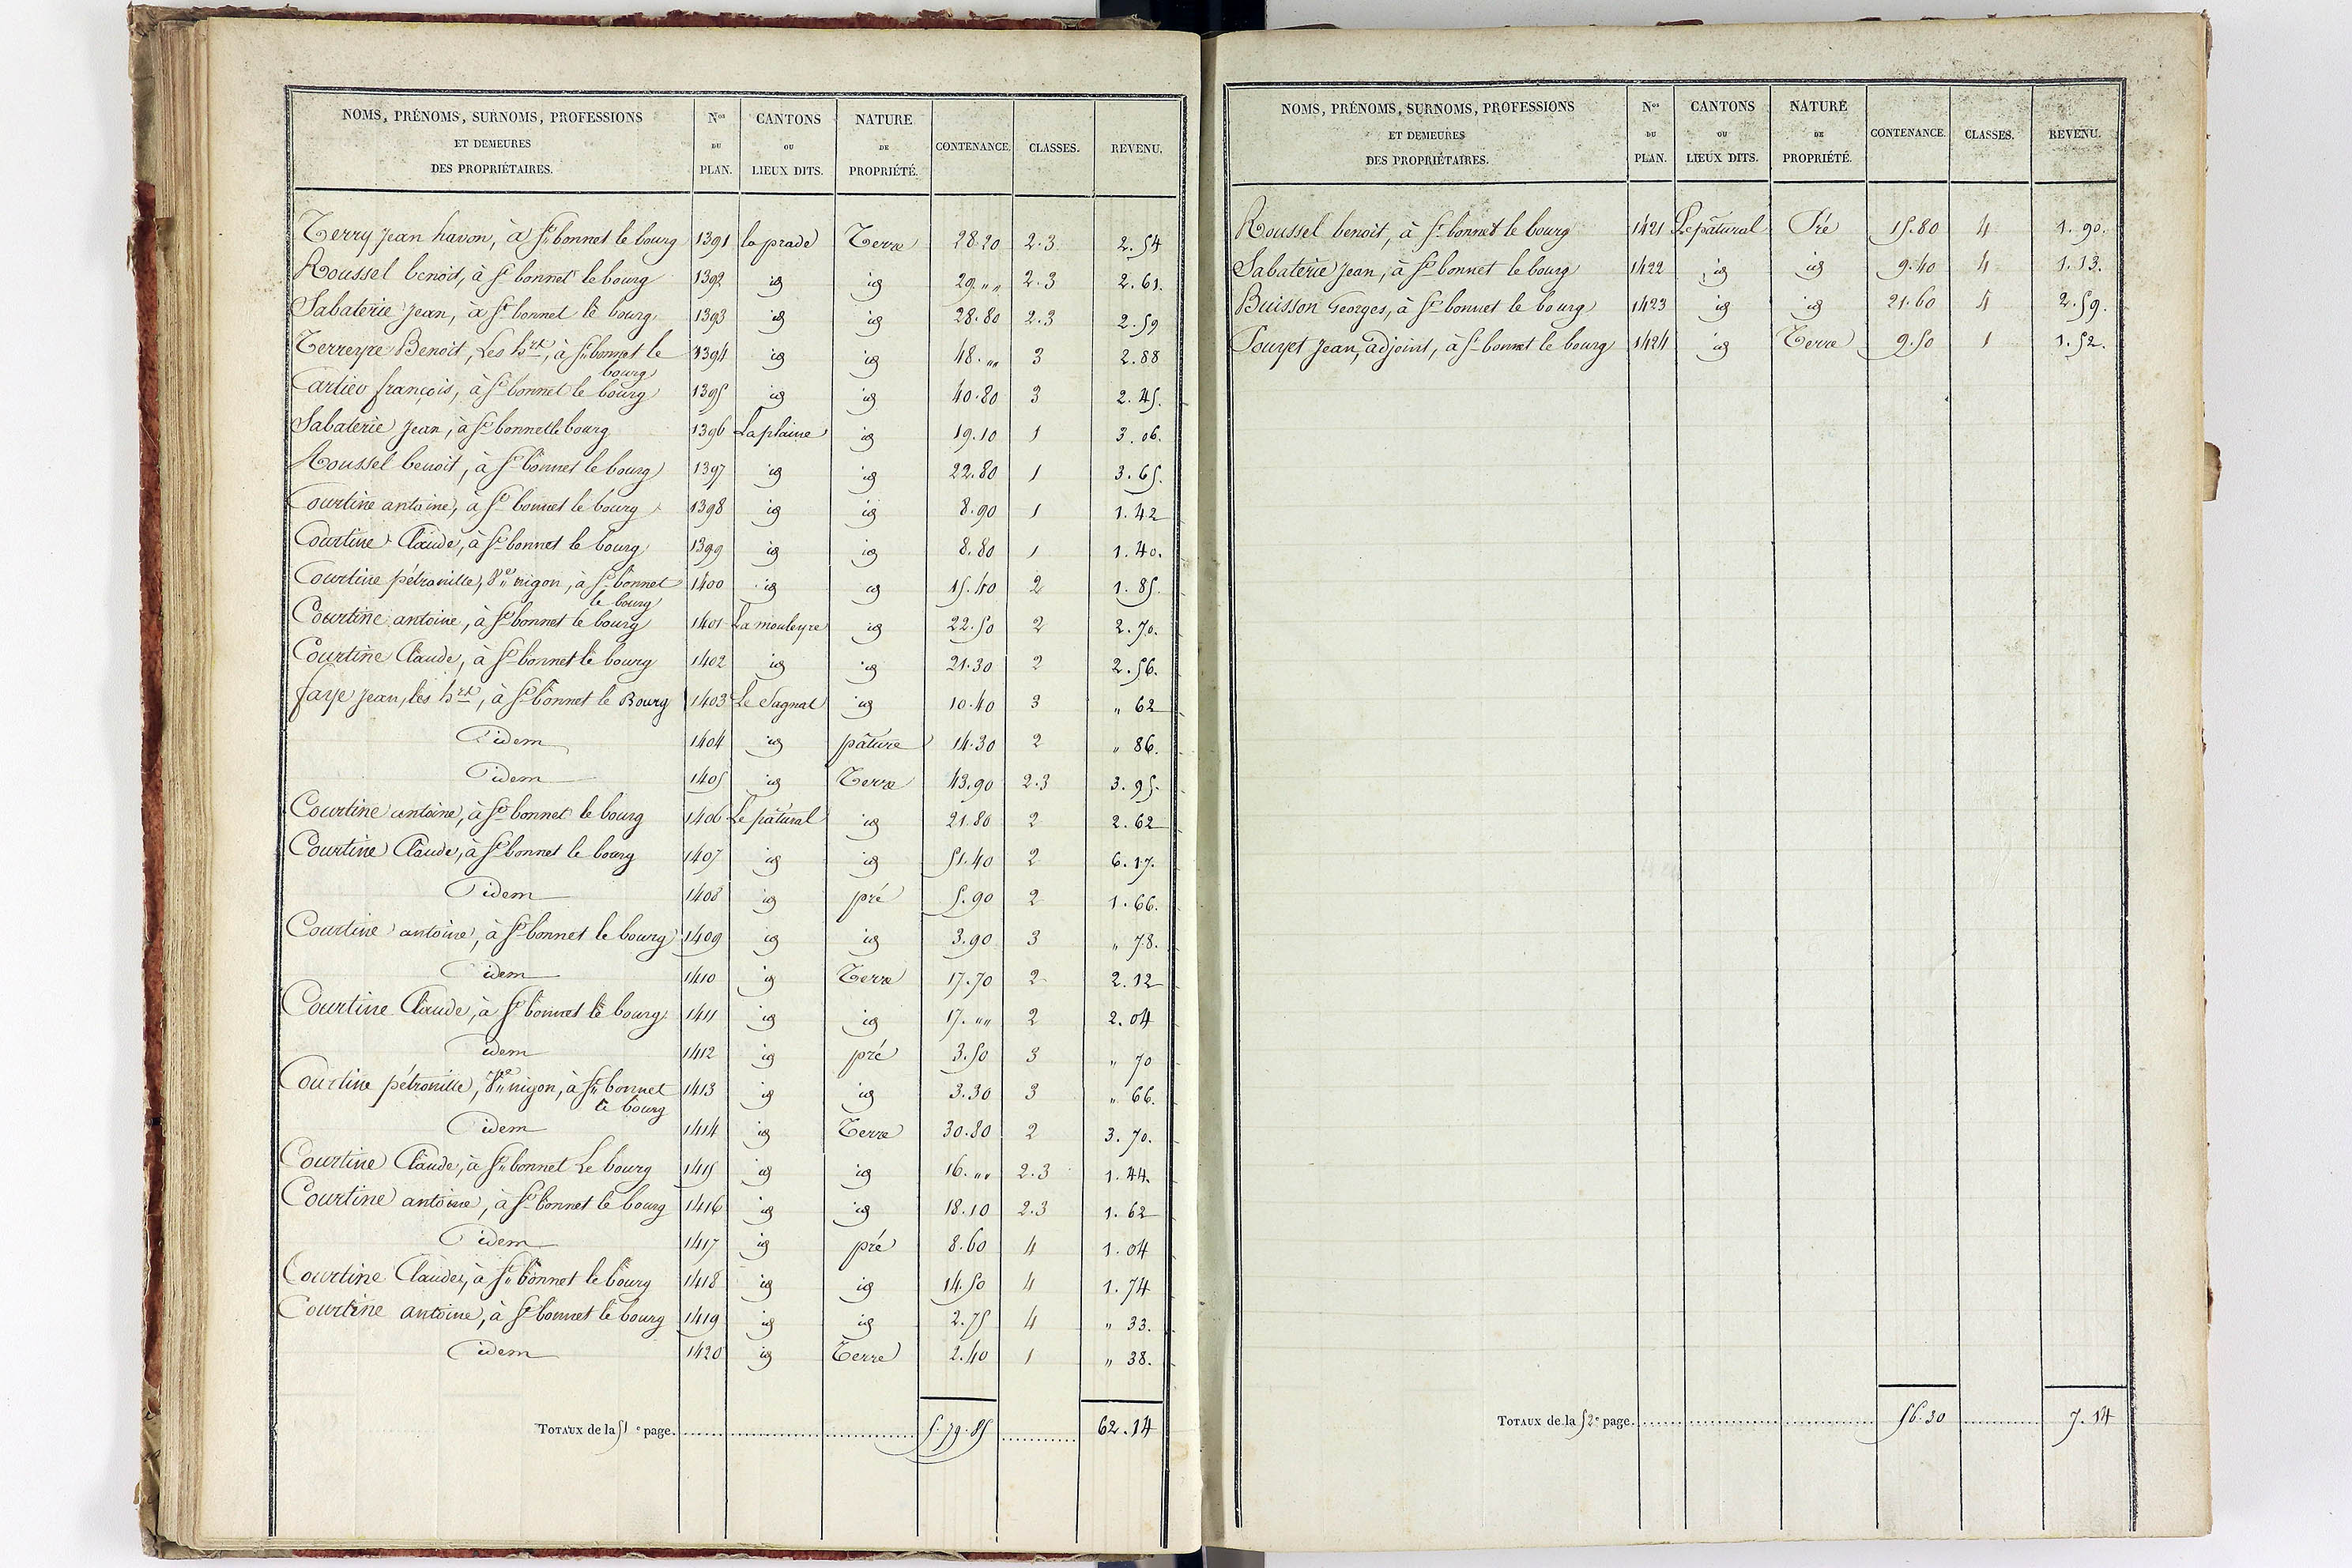 NOMS, PRÉNOMS, SURNOMS, PROFESSIONS ET DEMEURES DES PROPRIÉTAIRES. Nos DU PLAN. CANTONS OU LIEUX DITS. NATURE DE PROPRIÉTÉ. CONTENANCE. CLASSES. REVENU.
Terry Jean havon, à St bonnet le bourg 1391 la prade Terre 28.20 2.3 2.54
Roussel benoit, à St bonnet le bourg 1392 id id 29.„„ 2.3 2.61.
Sabaterie Jean, à St bonnet le bourg 1393 id id 28.80 2.3 2.59
Terreyre Benoit, Les hrs, à St bonnet le 1394 id id 48.„„ 3 2.88
bourg
Cartier françois, à St bonnet le bourg 1395 id id 40.80 3 2.45.
Sabaterie Jean, à St bonnet le bourg 1396 La plaine id 19.10 1 3.06.
Roussel benoit, à St bonnet le bourg 1397 id id 22.80 1 3.65.
Courtine antoine, à St bonnet le bourg 1398 id id 8.90 1 1.42
Courtine Claude, à St bonnet le bourg 1399 id id 8.80 1 1.40.
Courtine pétronille, Ve nigon, à St bonnet 1400 id id 15.40 2 1.85.
le bourg
Courtine antoine, à St bonnet le bourg 1401 La mouleyre id 22.50 2 2.70.
Courtine Claude, à St bonnet le bourg 1402 id id 21.30 2 2.56.
faye Jean, les hrs, à St bonnet le Bourg 1403 Le Sagnat id 10.40 3 „ 62
idem 1404 id pâture 14.30 2 „ 86.
idem 1405 id Terre 43.90 2.3 3.95.
Courtine antoine, à St bonnet le bourg 1406 Le pâtural id 21.80 2 2.62
Courtine Claude, à St bonnet le bourg 1407 id id 51.40 2 6.17.
idem 1408 id pré 5.90 2 1.66.
Courtine antoine, à St bonnet le bourg 1409 id id 3.90 3 „ 78.
idem 1410 id Terre 17.70 2 2.12
Courtine Claude, à St bonnet le bourg 1411 id id 17.„„ 2 2.04
idem 1412 id pré 3.50 3 „ 70
Courtine pétronille, Ve nigon, à St bonnet 1413 id id 3.30 3 „ 66.
le bourg
idem 1414 id Terre 30.80 2 3.70.
Courtine Claude, à St bonnet Le bourg 1415 id id 16.„„ 2.3 1.44.
Courtine antoine, à St bonnet le bourg 1416 id id 18.10 2.3 1.62
idem 1417 id pré 8.60 4 1.04
Courtine Claude, à St bonnet le bourg 1418 id id 14.50 4 1.74
Courtine antoine, à St bonnet le bourg 1419 id id 2.75 4 „ 33.
idem 1420 id Terre 2.40 1 „ 38.
TOTAUX de la 51e page. 5.79.85 62.14
NOMS, PRÉNOMS, SURNOMS, PROFESSIONS ET DEMEURES DES PROPRIÉTAIRES. Nos DU PLAN. CANTONS OU LIEUX DITS. NATURE DE PROPRIÉTÉ. CONTENANCE. CLASSES. REVENU.
Roussel benoit, à St bonnet le bourg 1421 Le pâtural Pré 15.80 4 1.90.
Sabaterie Jean, à St bonnet le bourg 1422 id id 9.40 4 1.13.
Buisson Georges, à St bonnet le bourg 1423 id id 21.60 4 2.59.
Pouyet Jean, adjoint, à St bonnet le bourg 1424 id Terre 9.50 1 1.52.
TOTAUX de la 52e page. 56.30 7.14